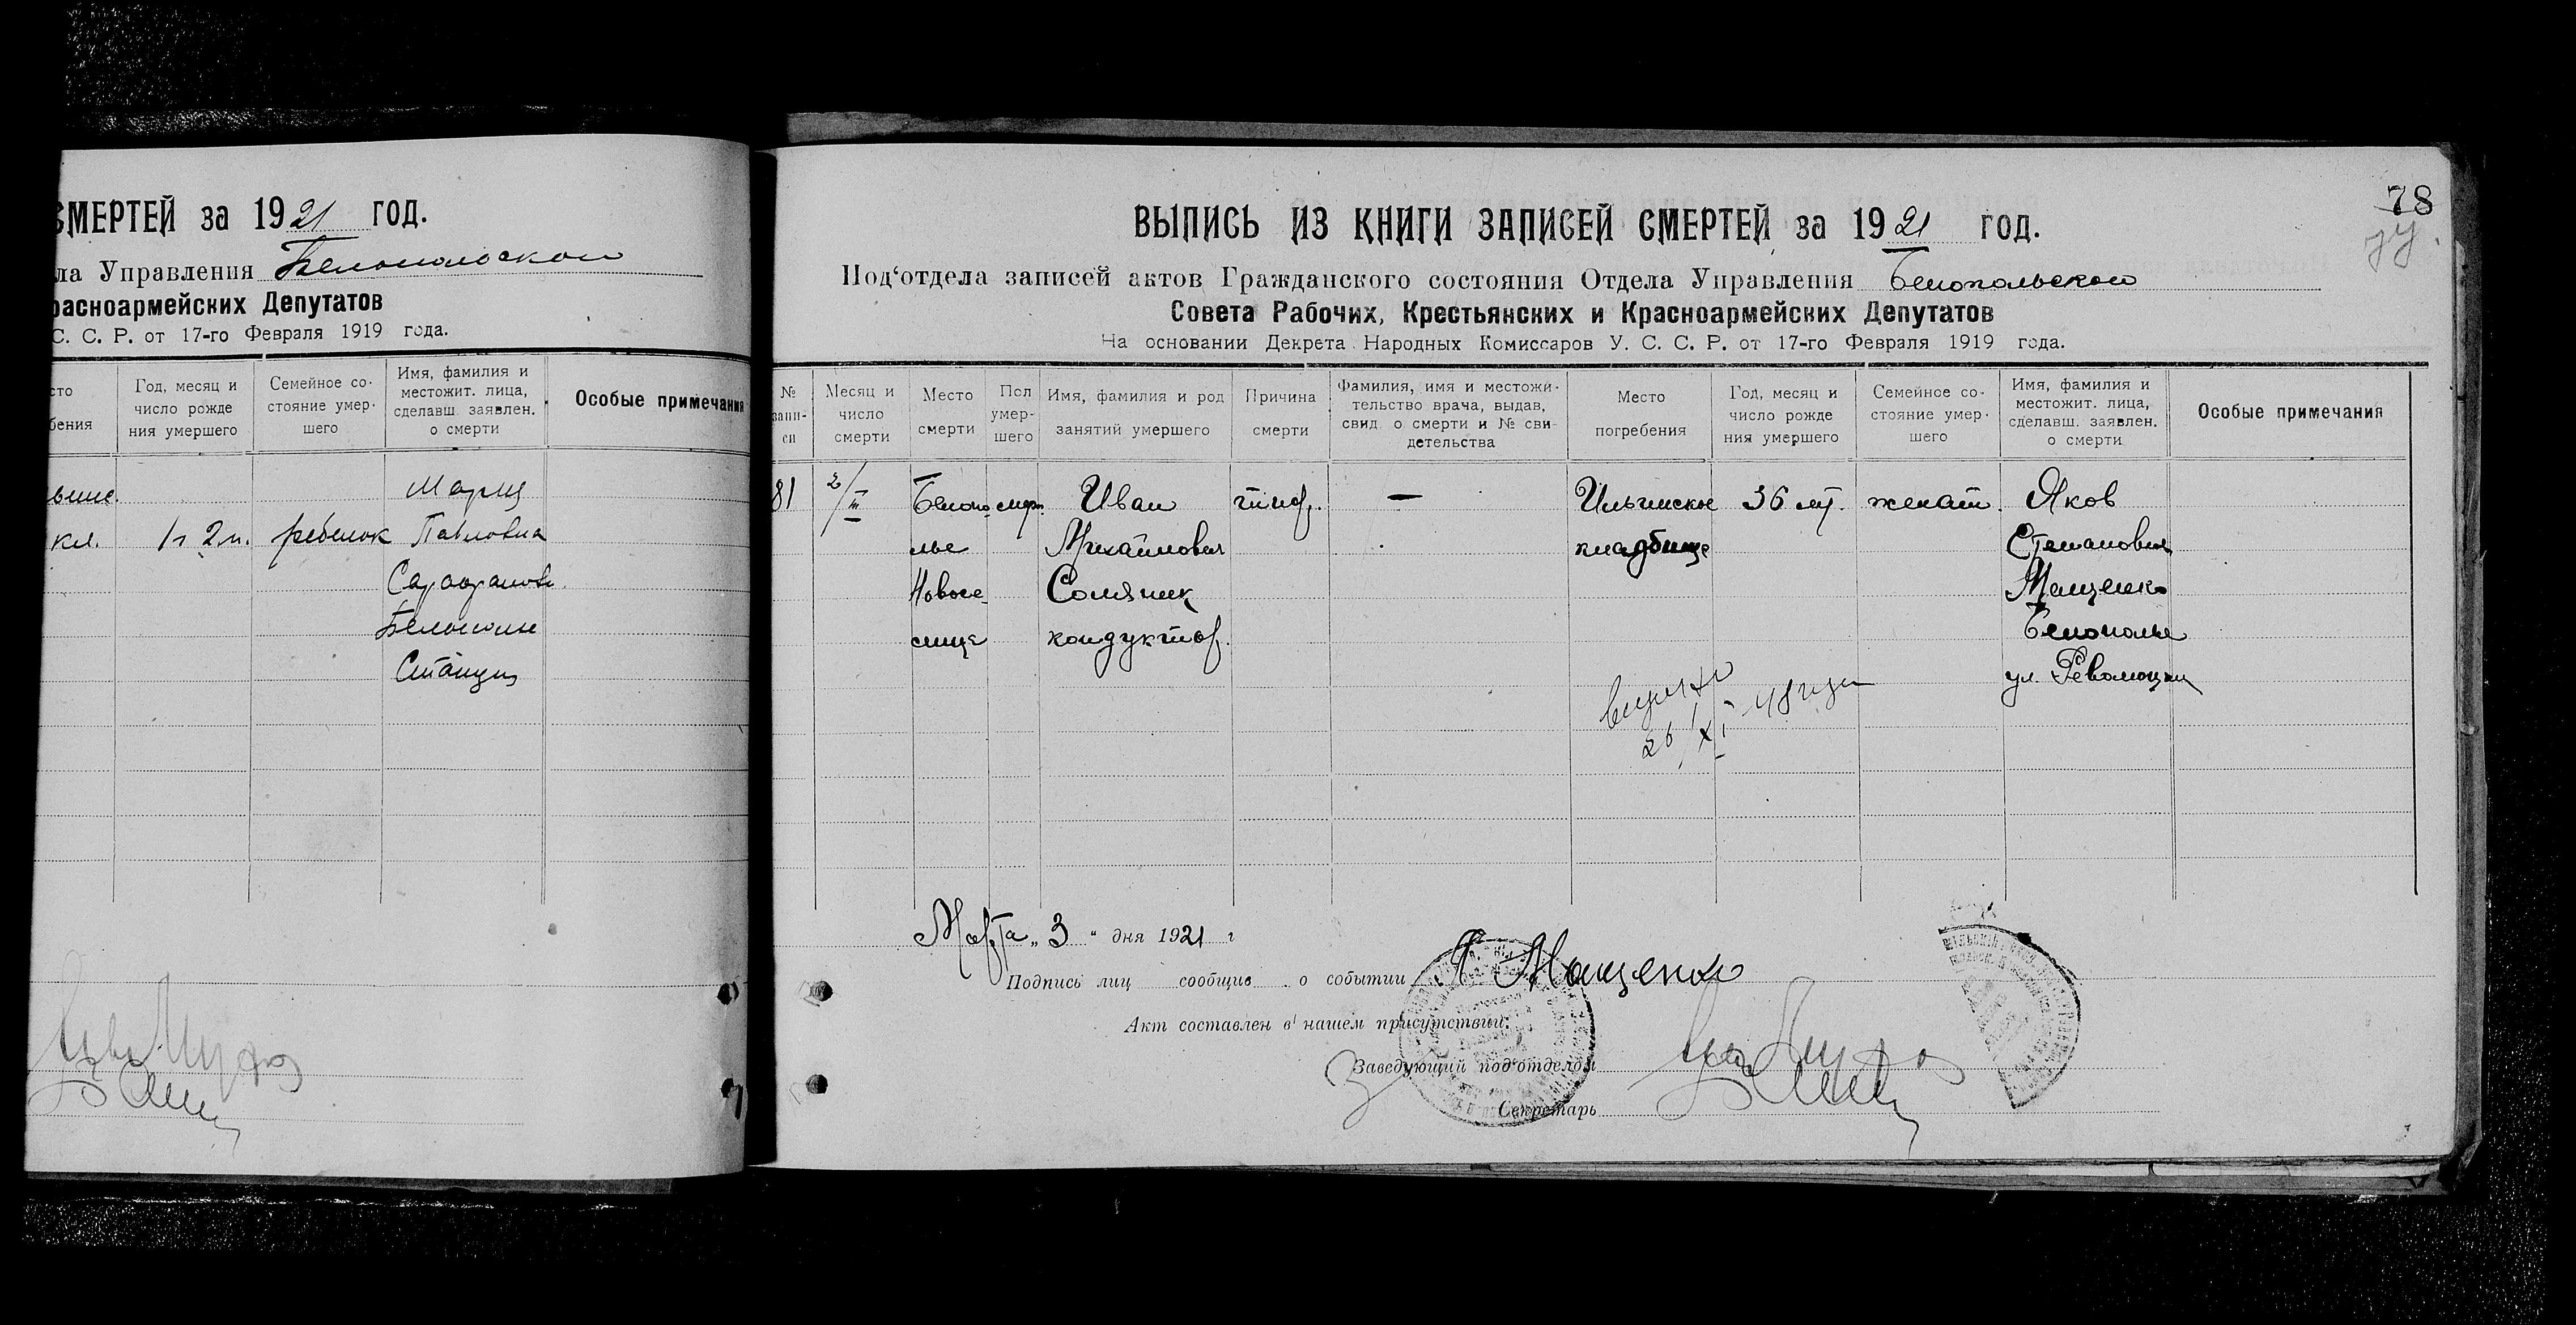 СМЕРТЕЙ за 1921 год.
ла Управления Белопольского
расноармейских Депутатов
С. С. Р. от 17-го Февраля 1919 года.
сто
бения
Год, месяц и
число рожде
ния умершего
Семейное со-
стояние умер-
шего
Имя, фамилия и
местожит. лица,
сделавш. заявлен.
о смерти
Особые примечания
кл.
1 г 2 м.
ребенок
Мария
Павловна
Белополье
Станция
78
77.
ВЫПИСЬ ИЗ КНИГИ ЗАПИСЕЙ СМЕРТЕЙ за 1921 год.
Под‘отдела записей актов Гражданского состояния Отдела Управления Белопольского
Совета Рабочих, Крестьянских и Красноармейских Депутатов
На основании Декрета Народных Комиссаров У. С. С. Р. от 17-го Февраля 1919 года.
№
запи-
си
Месяц и
число
смерти
Место
смерти
Пол
умер-
шего
Имя, фамилия и род
занятий умершего
Причина
смерти
Фамилия, имя и местожи-
тельство врача, выдав,
свид. о смерти и № сви-
детельства
Место
погребения
Год, месяц и
число рожде
ния умершего
Семейное со-
стояние умер-
шего
Имя, фамилия и
местожит. лица,
сделавш. заявлен.
о смерти
Особые примечания
81
2/III
Белопо-
лье
Новосе-
лице
Иван
Михайлович
Соляник
кондуктор.
тиф.
—
Ильинское
кладбище
36 лет.
женат.
Яков
Степанович
Мащенко
Белополье
ул. Революции
26/XI - 48 года
Марта „ 3 “ дня 1921 г
Подпись лиц сообщив о событии Я Мащенко
Акт составлен в нашем присутствии:
Заведующий под‘отделом
Секретарь